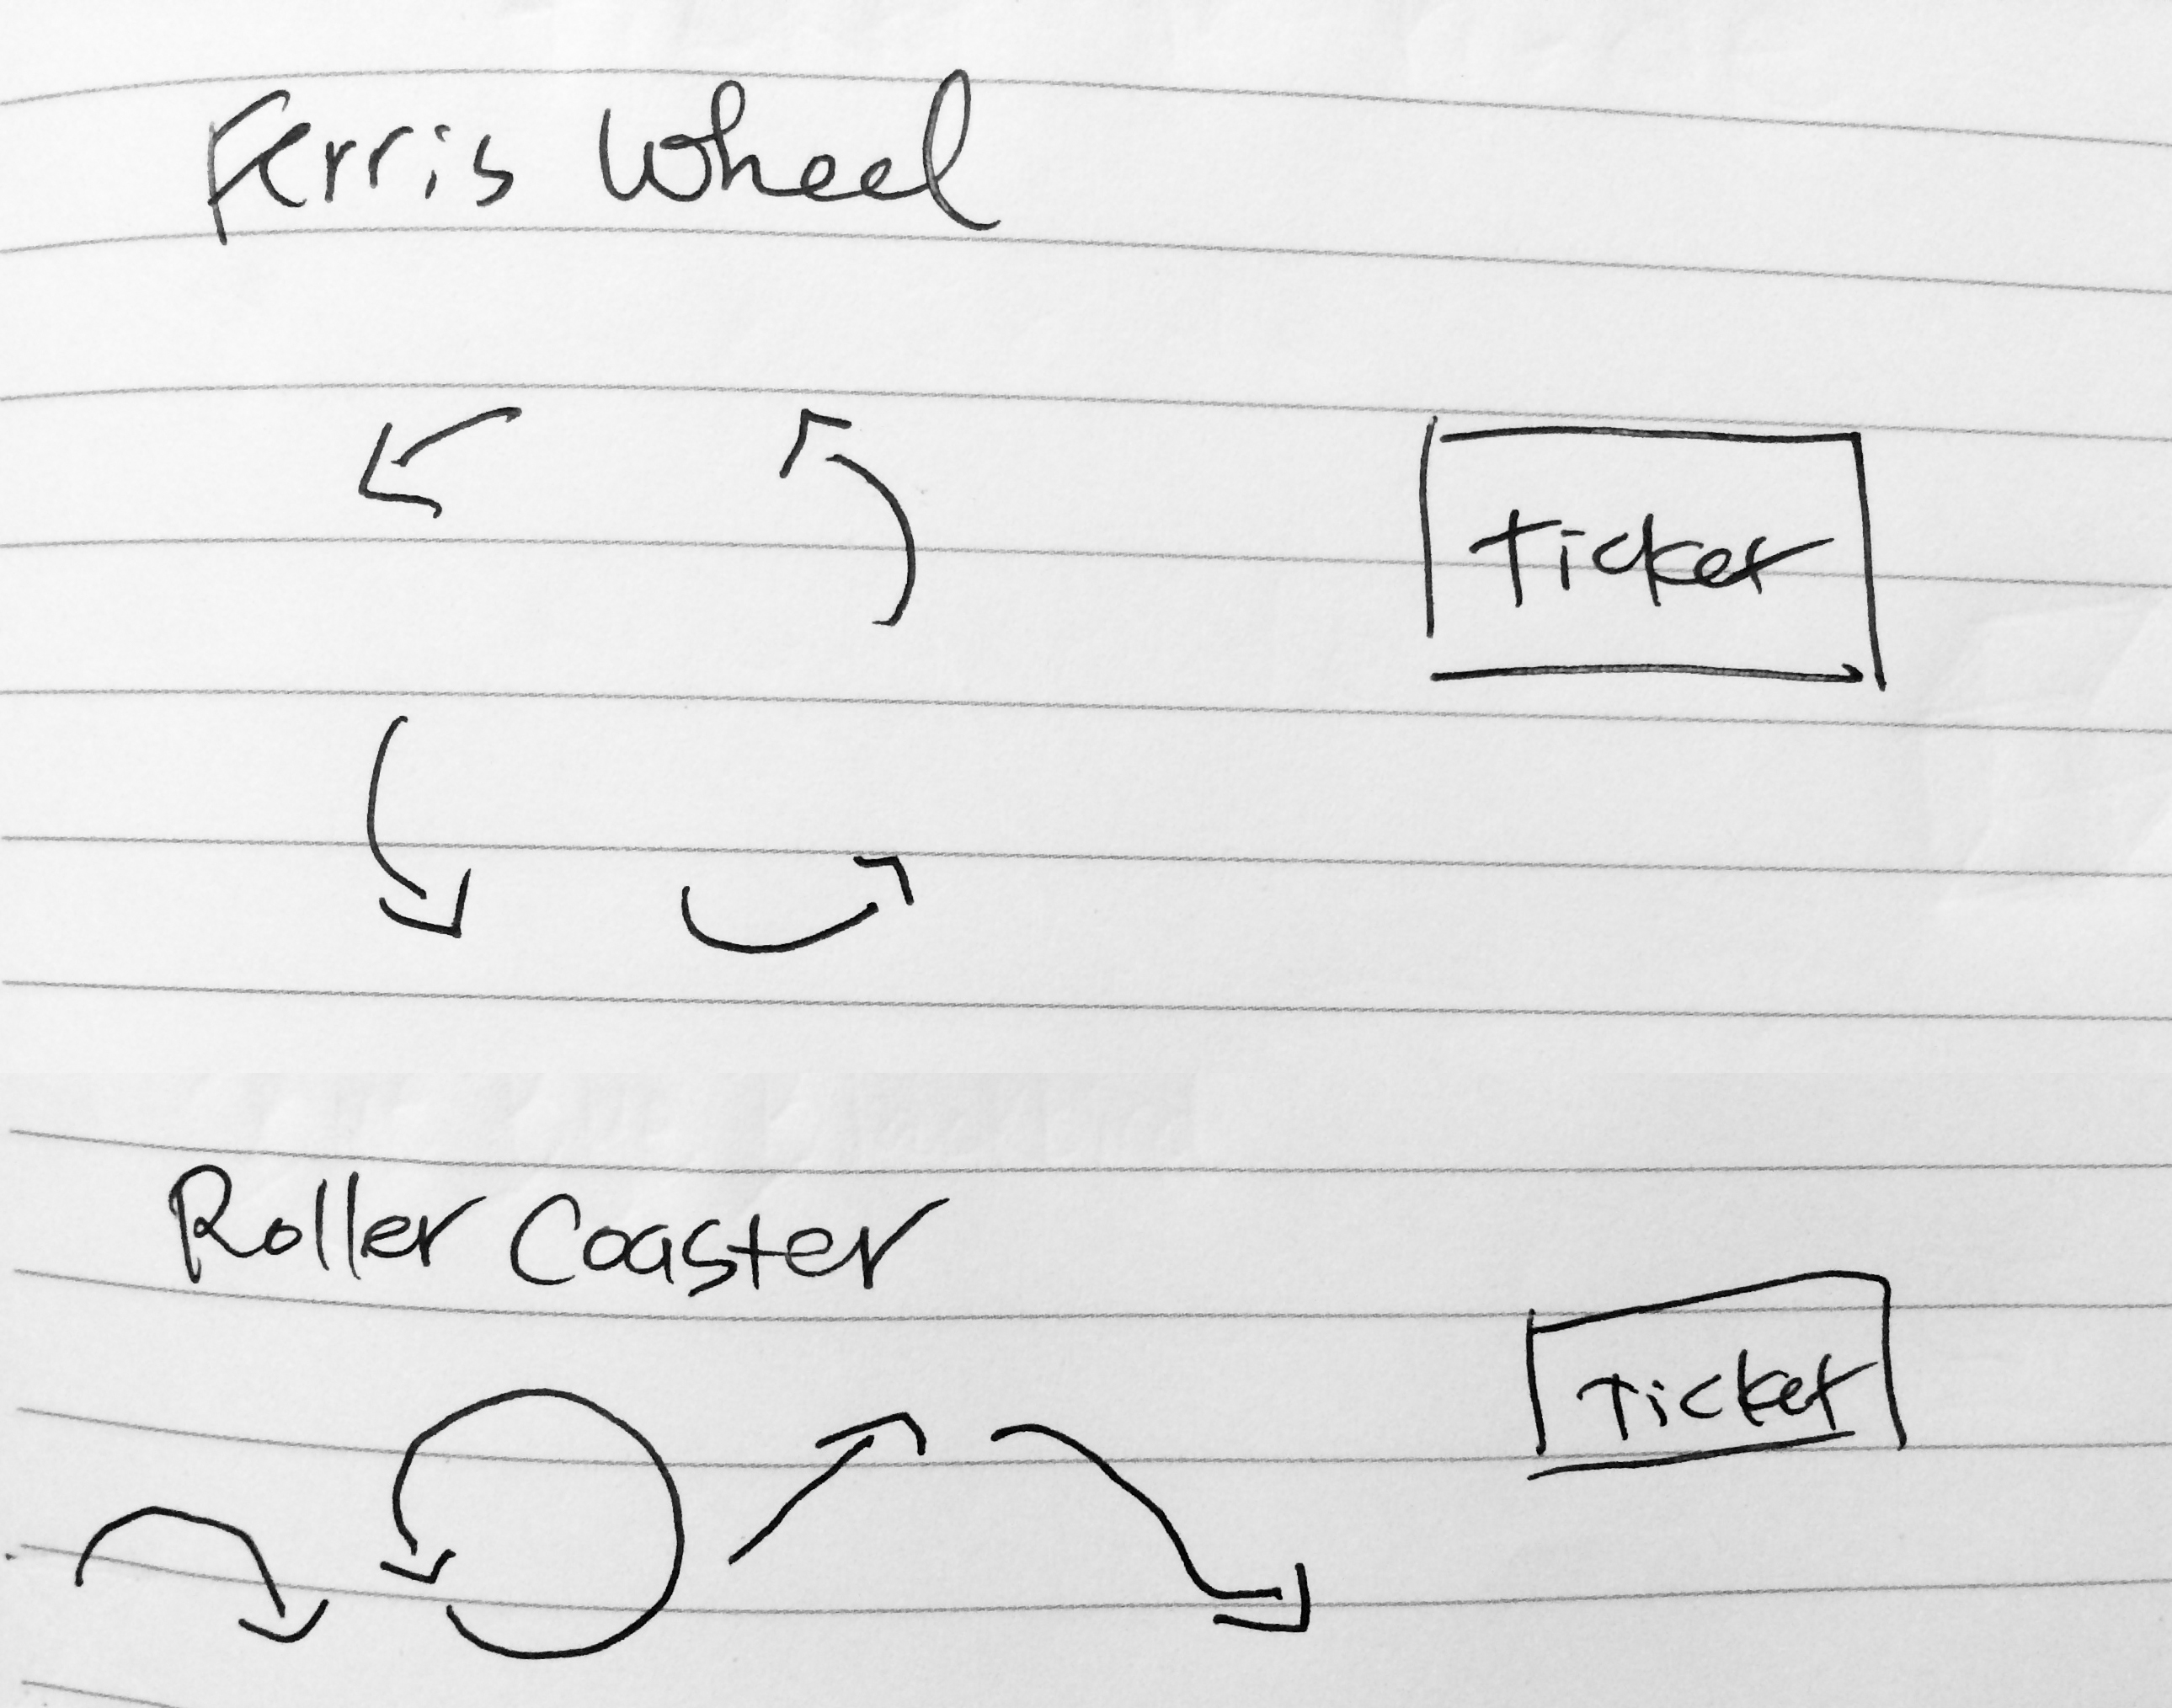 Ferris Wheel
Ticket
Roller Coaster
Ticket